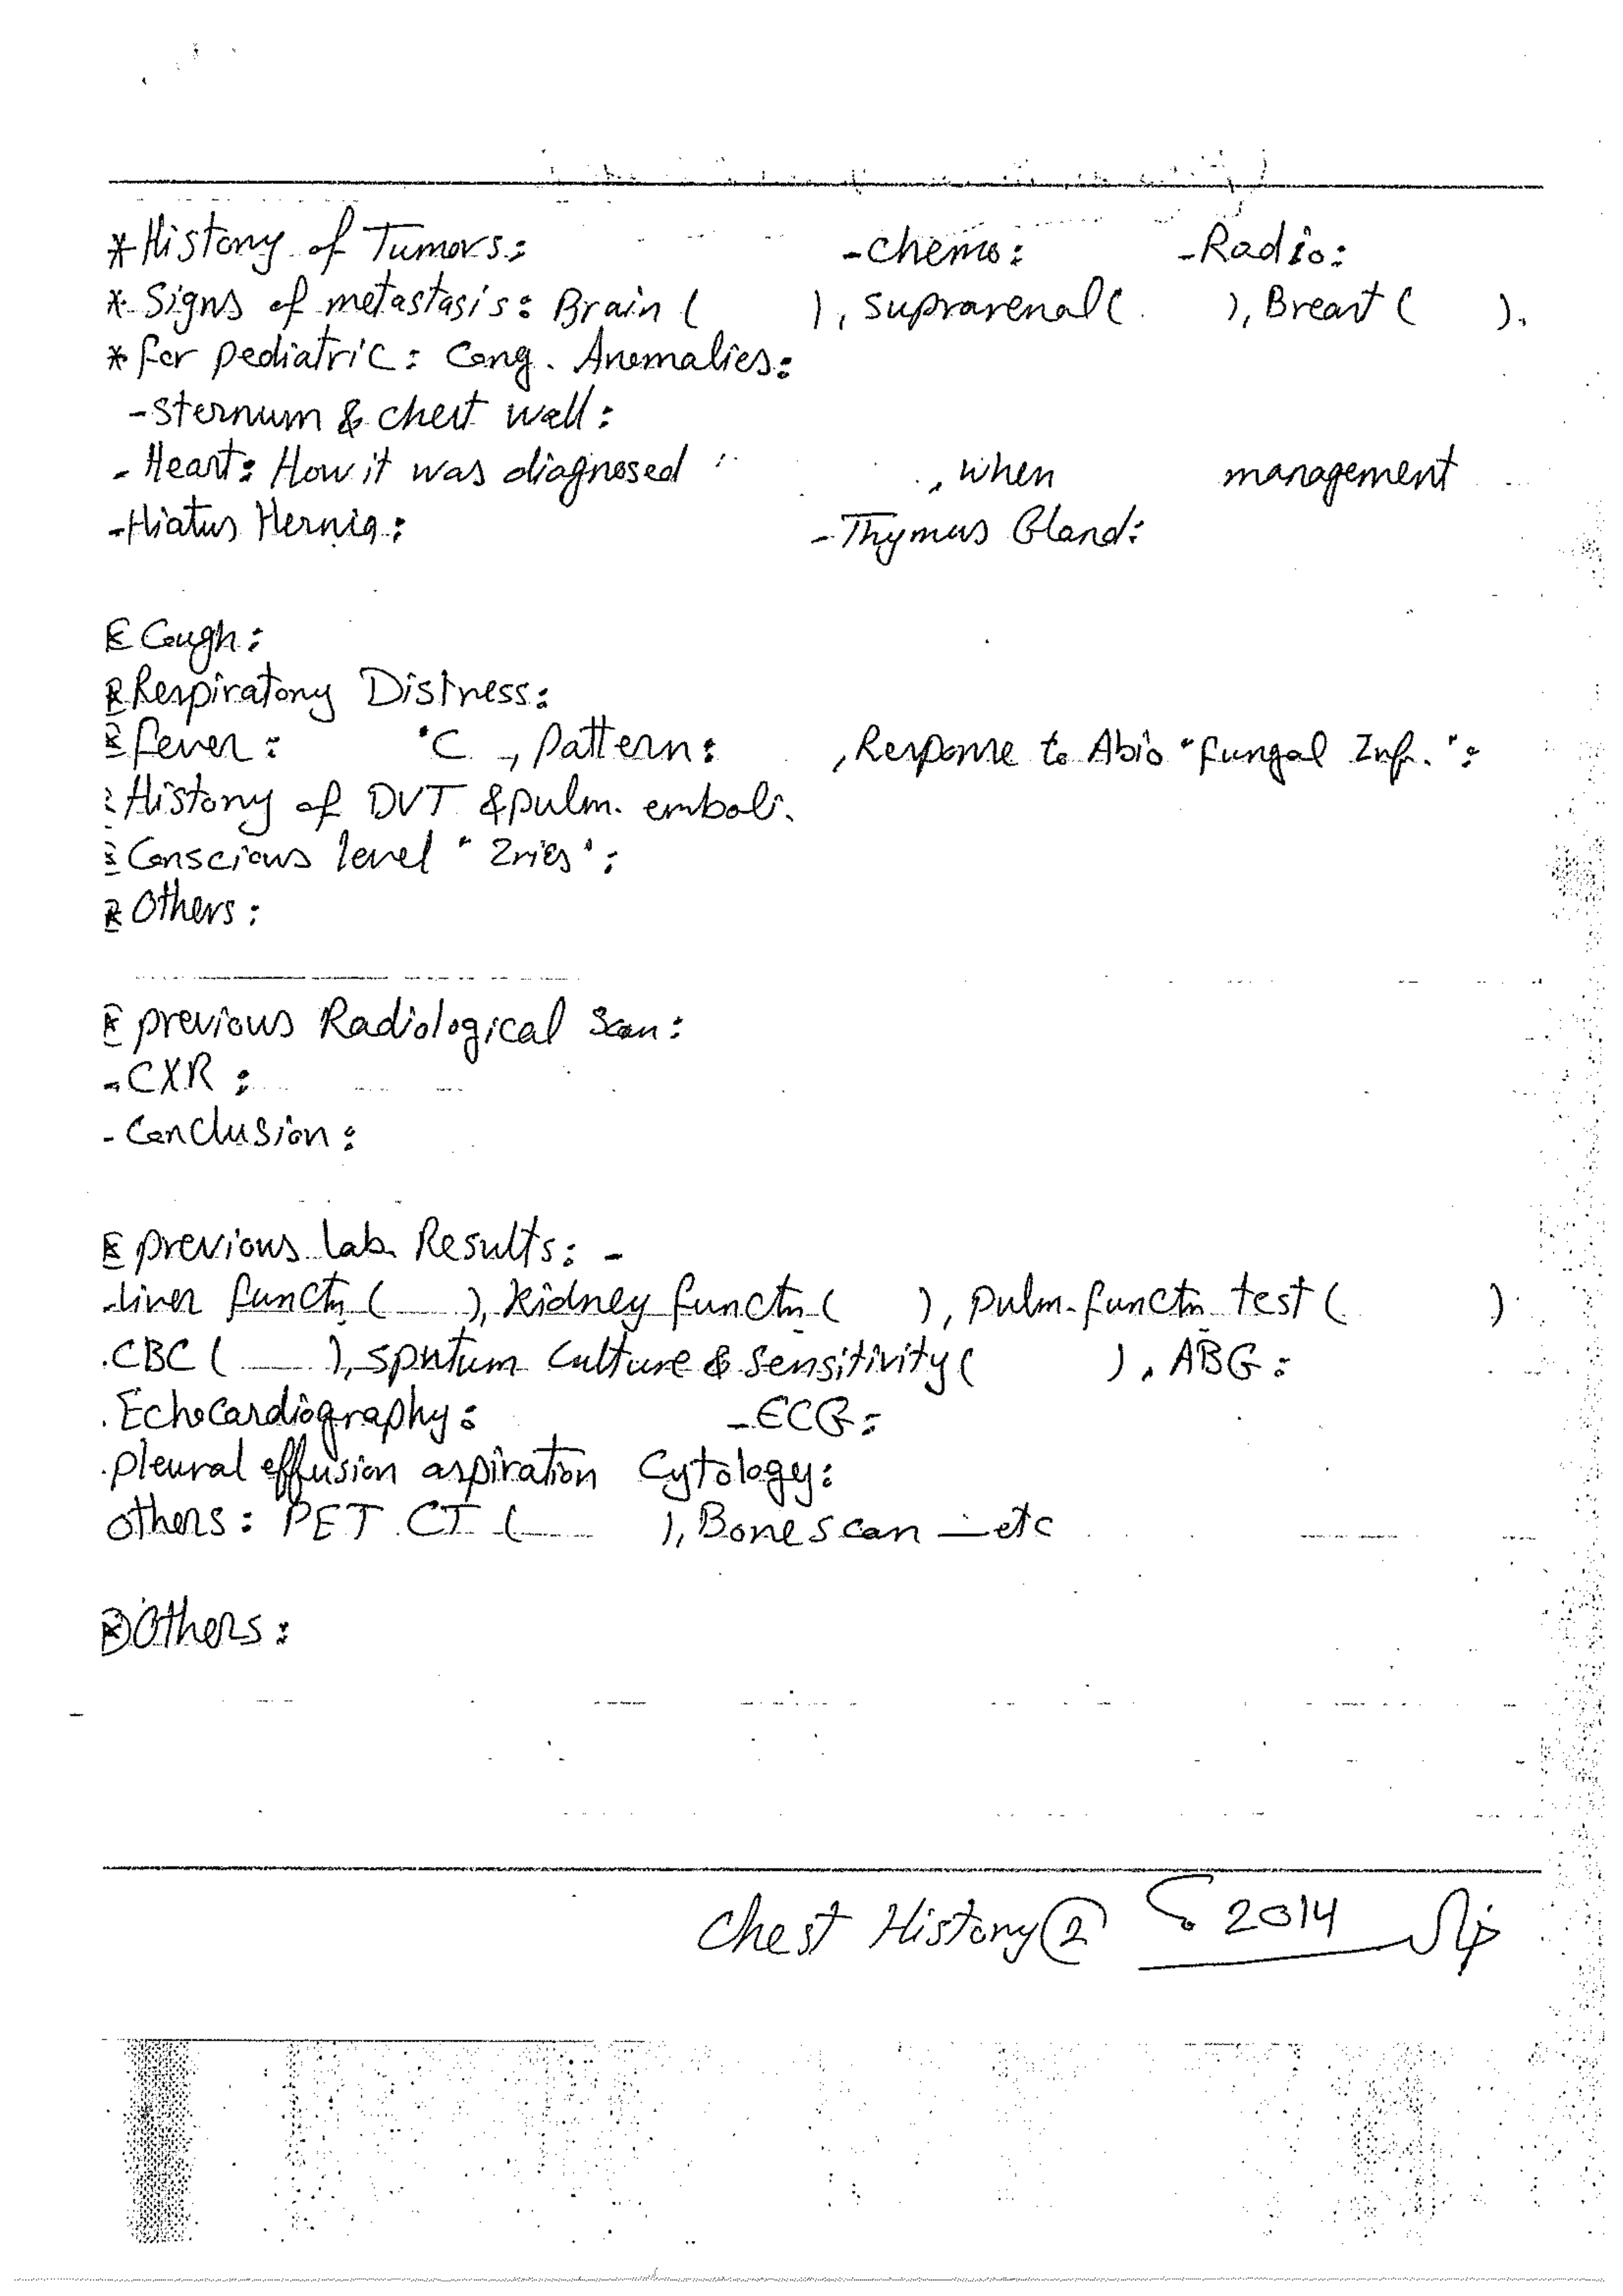 * History of Tumors: -Chemo: -Radio:
* Signs of metastasis: Brain ( ), suprarenal ( ), Breast ( ).
* for pediatric: Cong. Anomalies:
- sternum & chest wall:
- Heart: How it was diagnosed , when management
- Hiatus Hernia: - Thymus Gland:
* Cough:
* Respiratory Distress:
* fever: °C , pattern: , Response to Abio "fungal Inf.":
* History of DVT & pulm. emboli.
* Conscious level " ":
* Others:
* previous Radiological Scan:
- CXR:
- Conclusion:
* previous lab. Results: -
- liver functn ( ), kidney functn ( ), pulm. functn test ( )
. CBC ( ), sputum Culture & Sensitivity ( ), ABG:
. Echocardiography: - ECG:
. pleural effusion aspiration Cytology:
others: PET CT ( ), Bone scan — etc
* Others:
Chest History 2 2014